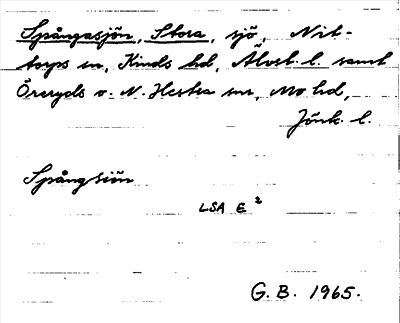 Spångasjön, Stora, sjö, Nit-
torps sn, Kinds hd, Älvsb. l. samt
Öreryds o. N. Hestra snr, Mo hd,
Jönk. l.
Spångsiön
LSA E²
G. B. 1965.